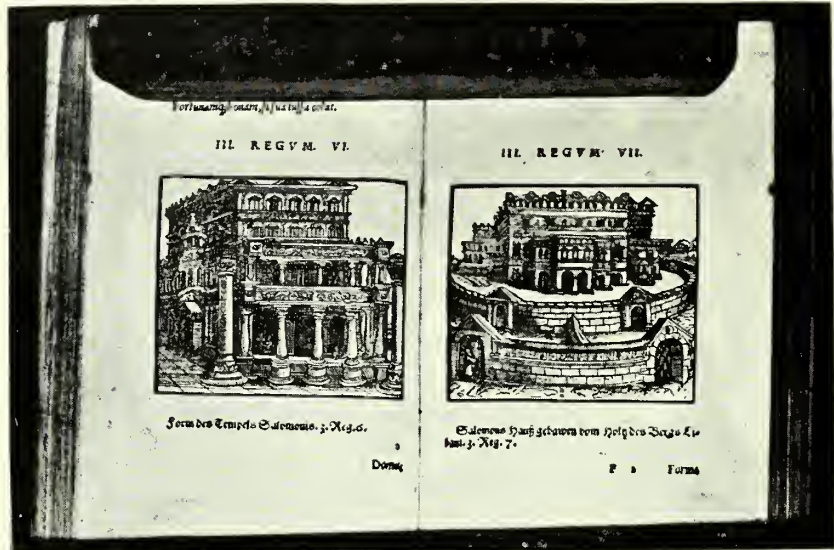 III. REGVM. VI.
Form des Tempels Salomonis. 3. Reg. 6.
Domus
III. REGVM. VII.
Salomons Hauß gebawen vom Holtz des Bergs Li-
bani. 3. Reg. 7.
P 2 Forma